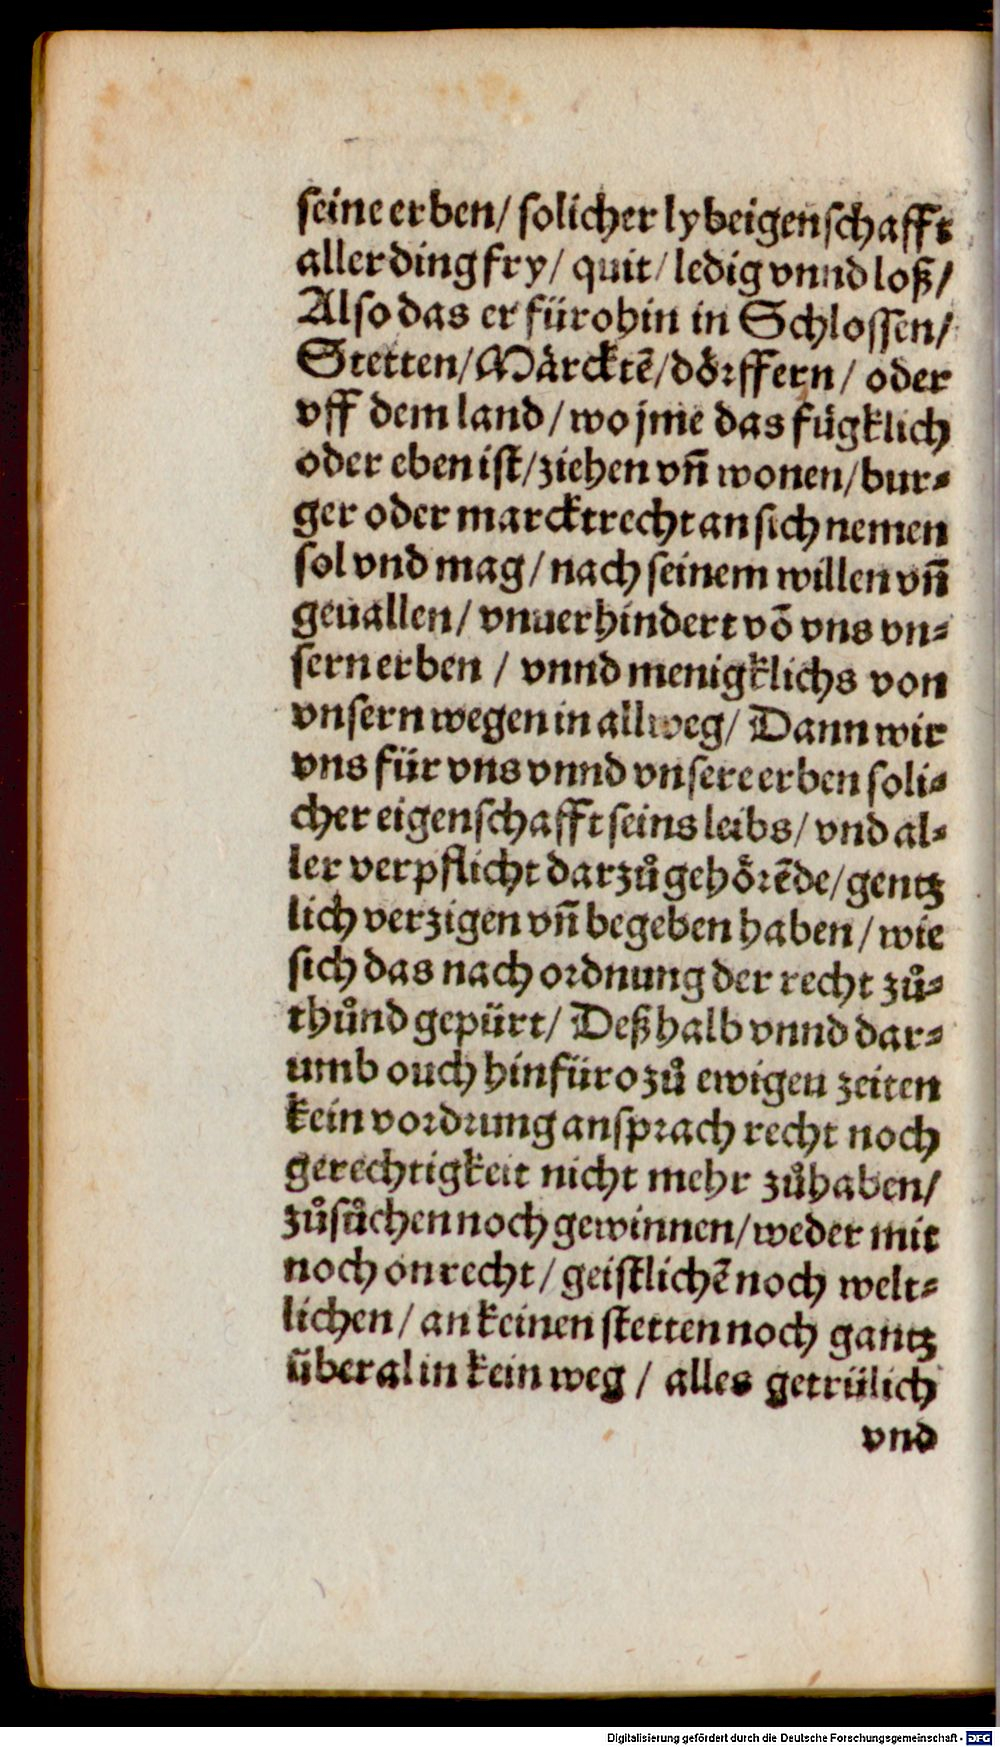 seine erben/ solicher lybeigenschafft
aller ding fry/ quit/ ledig vnnd loß/
Also das er fürohin in Schlossen/
Stetten/ Märcktē/ dörffern/ oder
vff dem land/ wo jme das fůgklich
oder eben ist/ ziehen vn̄ wonen/ bur⸗
ger oder marcktrecht an sich nemen
sol vnd mag/ nach seinem willen vn̄
geuallen/ vnuerhindert vō vns vn⸗
sern erben / vnnd menigklichs von
vnsern wegen in allweg/ Dann wir
vns für vns vnnd vnsere erben soli⸗
cher eigenschafft seins leibs/ vnd al⸗
ler verpflicht darzů gehörēde/ gentz
lich verzigen vn̄ begeben haben/ wie
sich das nach ordnung der recht zů⸗
thůnd gepürt/ Deßhalb vnnd dar⸗
umb ouch hinfüro zů ewigen zeiten
kein vordrung ansprach recht noch
gerechtigkeit nicht mehr zůhaben/
zůsůchen noch gewinnen/ weder mit
noch on recht/ geistlichē noch welt⸗
lichen/ an keinen stetten noch gantz
überal in kein weg / alles getrülich
vnd
Digitalisierung gefördert durch die Deutsche Forschungsgemeinschaft - DFG